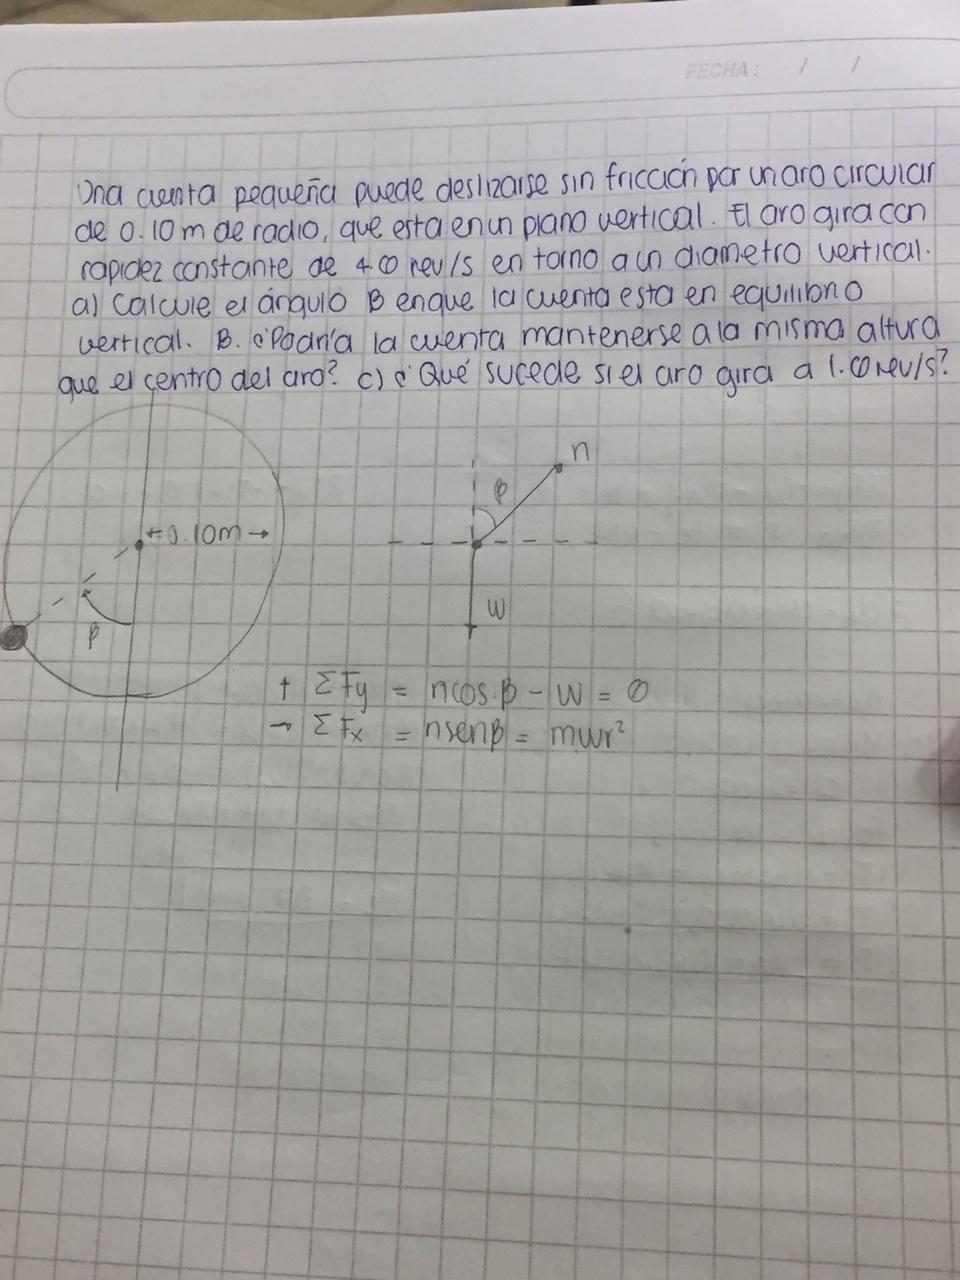 FECHA: / /
Una cuenta pequeña puede deslizarse sin fricción por un aro circular
de 0.10m de radio, que esta en un plano vertical. El aro gira con
rapidez constante de 4.00 rev/s en torno a un diametro vertical.
a) Calcule el ángulo B en que la cuenta esta en equilibrio
vertical. B. ¿Podría la cuenta mantenerse a la misma altura
que el centro del aro? c) ¿Qué sucede si el aro gira a 1.00 rev/s?
n
β
0.10m
W
β
↑ ΣFy = ncos.β - W = 0
→ ΣFx = nsenβ = mwr²